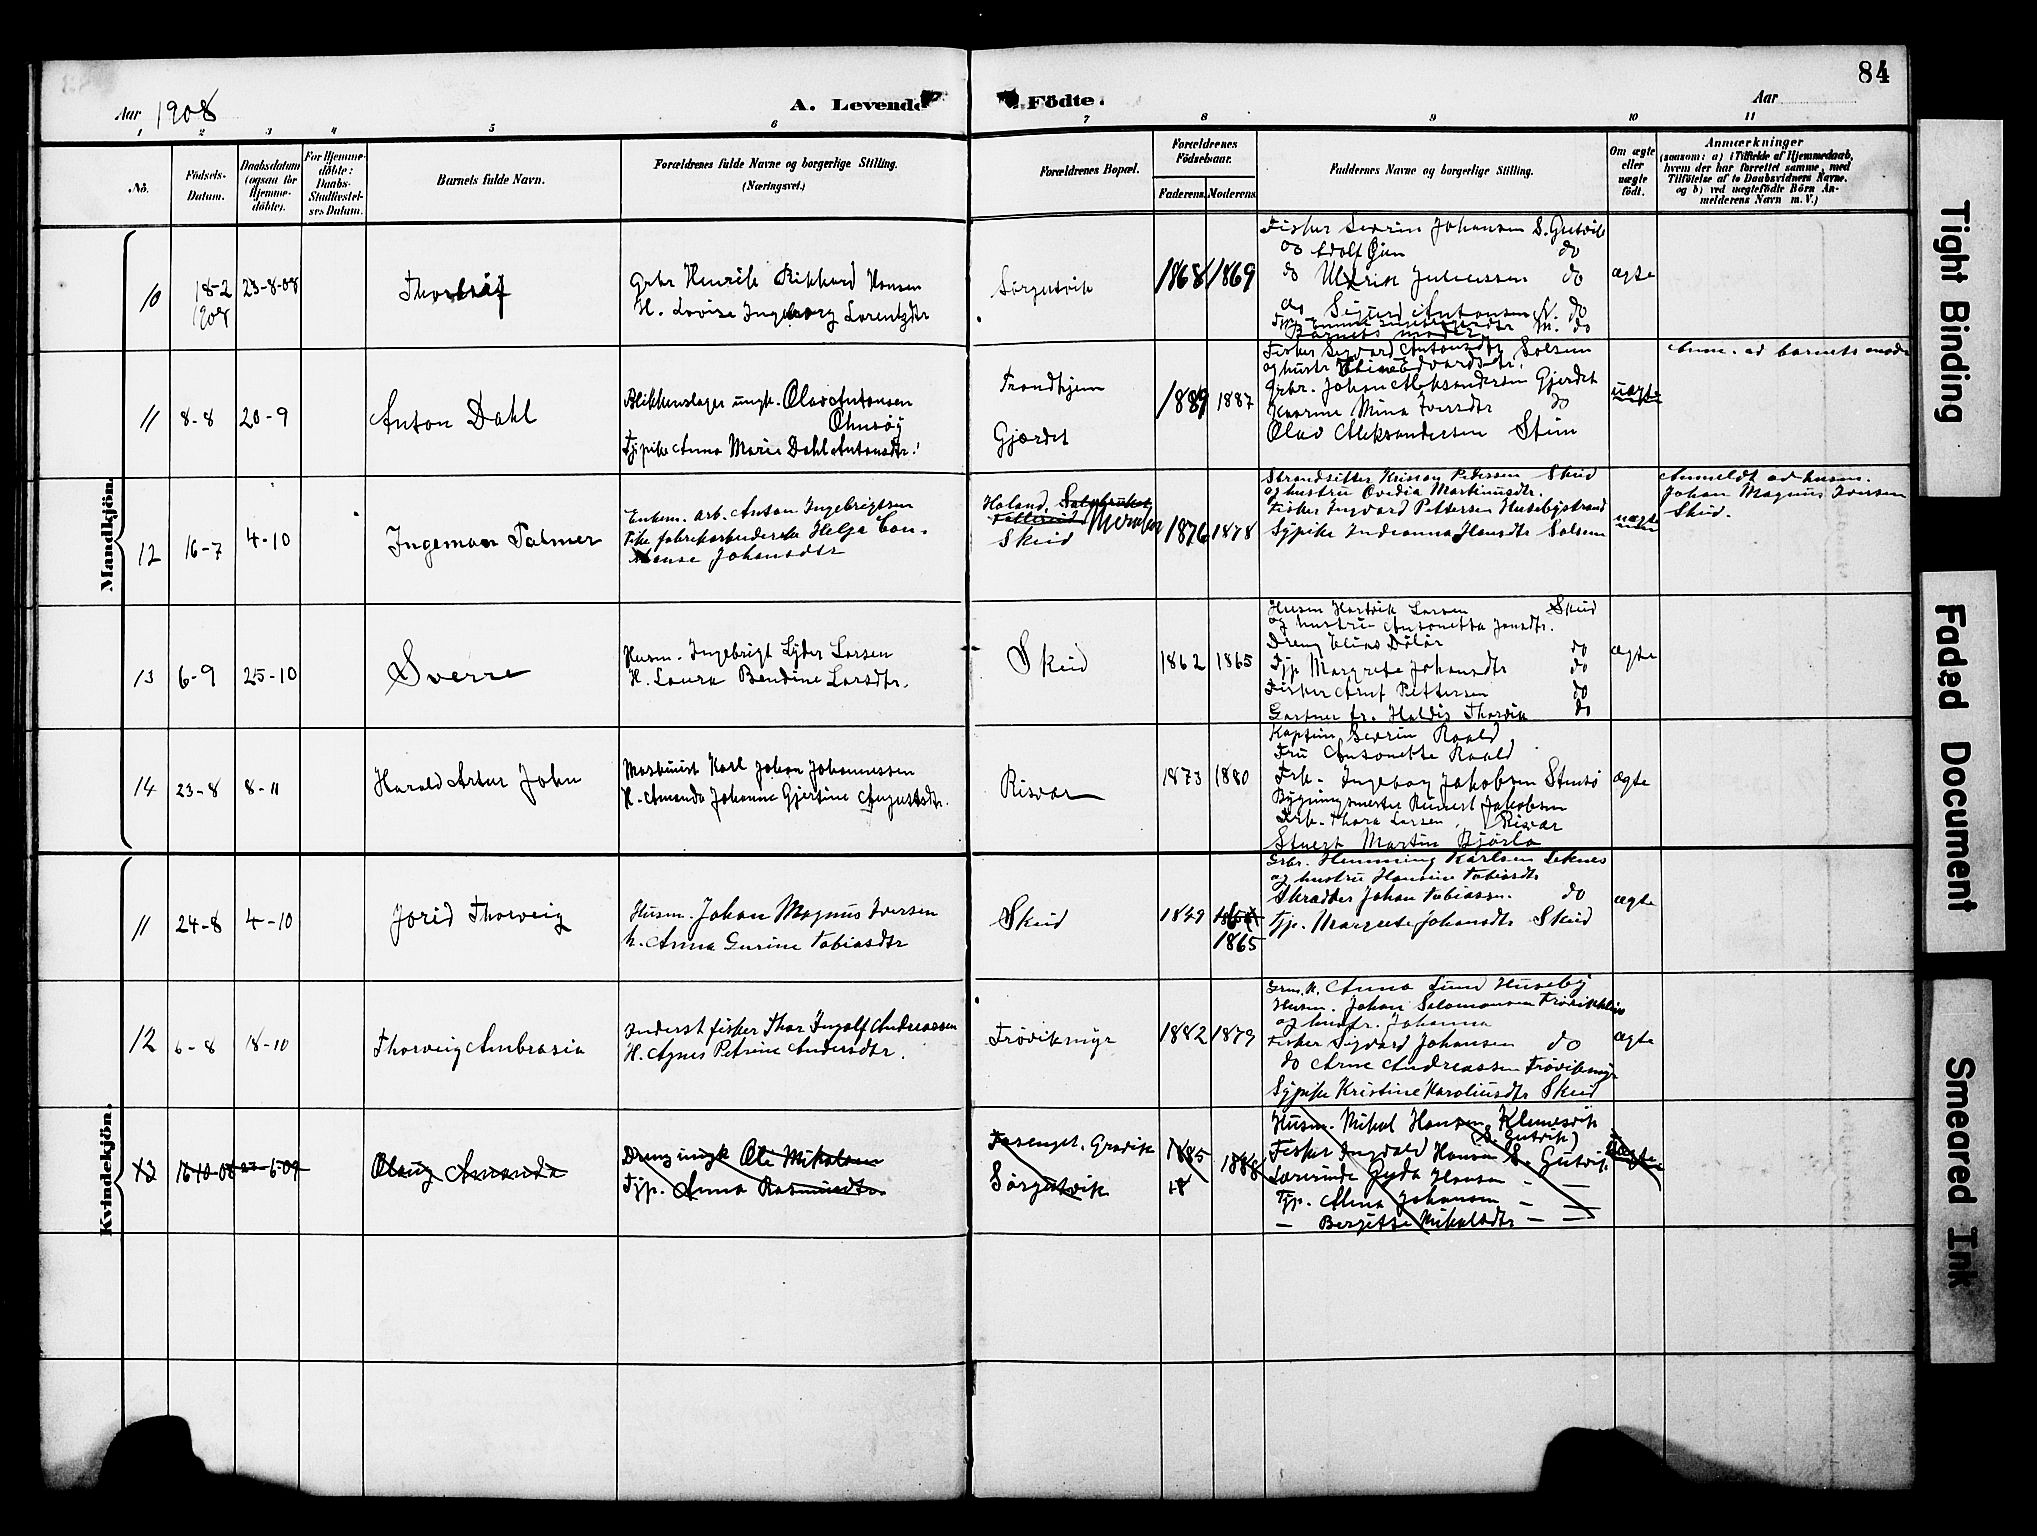 84
Aar 1908
A. Levende Födte.
Aar
1 2 3 4 5 6 7 8 9 10 11
No.
Födsels-Datum.
Daabsdatum (ogsaa for Hjemme-döbte).
For Hjemme-döbte: Daabs-Stadfæstel-ses Datum.
Barnets fulde Navn.
Forældrenes fulde Navne og borgerlige Stilling.
(Næringsvei.)
Forældrenes Bopæl.
Forældrenes Födselsaar.
Faderens. Moderens.
Faddernes Navne og borgerlige Stilling.
Om ægte eller uægte födt.
Anmærkninger
(saasom: a) i Tilfælde af Hjemmedaab, hvem der har forrettet samme, med Tilföielse af to Daabsvidners Navne. og b) ved uægtefödte Börn Anmelderens Navn m. V.)
Mandkjön.
10
18-2
1908
23-8-08
Thorleif
Grbr Henrik Rikkard Hansen
H. Lovise Ingeborg Lorentzdtr
Sørgutvik
1868 1869
Fisker Sevrin Johansen S. Gutvik
do Adolf do
do Ulrik Juliussen do
do Sigurd Antonsen N. do
Barnets moder
ægte
11
8-8
20-9
Anton Dahl
Blikkenslager ungk. Olav Antonsen
Fjpike Anna Marie Dahl Antonsdtr.
Trondhjem
Gjærdet
1889 1887
Fisker Sigvard Antonsdtr Solsem
og hustr Edvardsdtr.
Grbr. Johan Aleksandersen Gjerdet
Kaarine Mina Iversdtr do
Olav Aleksandersen Stein
uægte
Anm. ad barnets moder
12
16-7
4-10
Ingeman Palmer
Enkem. arb. Anton Ingebrigtsen
Pike fabrikarbeiderske Helga Con-
stanse Johansdtr
Holand,
Meraker
Skeid
1876 1878
Strandsitter Kristian Petersen Skeid
og hustru Ovedia Martinusdtr.
Fisker Ingvard Pettersen Husebystrand
Sypike Indianna Hansdtr Solsem
uægte
Anmeldt ad husm.
Johan Magnus Iversen
Skeid.
13
6-9
25-10
Sverre
Husm. Ingebrigt Lyder Larsen
H. Laura Bendine Larsdtr.
Skeid
1862 1865
Husm Hartvik Larsen Skeid
og hustru Antonetta Jensdtr.
Dreng Elias Dølør do
Fjp Margrete Johansdtr do
Fisker Arnf Pettersen do
Gartner fr. Haldis Thorvik do
ægte
14
23-8
8-11
Harald Artur John
Maskinist Karl Johan Johannessen
H. Amanda Johanne Gjertine Augustsdtr.
Risvær
1873 1880
Kaptein Sevrin Roald
Fru Antonette Roald
Frk. Ingeborg Jakobsen Stensø
Bygningsmester Reinert Jakobsen
Frk. Thora Larsen, Risvær
Stuert Martin Bjørlo
ægte
Kvindekjön.
11
24-8
4-10
Jorid Thorveig
Husm. Johan Magnus Iversen
h. Anna Gurine Tobiasdtr
Skeid
1849
1865
Grbr. Hemming Karlsen Leknes
og hustru Hansine Tobiasdtr
Skrædder Johan Tobiassen do
Fjp. Margrete Johansdtr Skeid
ægte
12
6-8
18-10
Thorveig Ambrosia
Inderst fisker Thor Ingolf Andreassen
H. Agnes Petrine Andersdtr.
Frøvikmyr
1882 1879
Grm. k. Anna Lund Huseby
Husm. Johan Salomonsen Frøviklien
og hustr. Johanna
Fisker Sigvard Johansen do
do Arne Andreassen Frøvikmyr
Sypike Kristine Karoliusdtr Skeid
ægte
13
16-10-08
-6-09
Olaug Amanda
Dreng ungk Ole Mikalsen
Fjp. Anna Rasmusdtr
Fosenget. Gravik
Sørgutvik
1885 1888
18
Husm. Mikal Hansen Klemesvik
(S. Gutvik)
Fisker Ingvald Hansen S. Gutvik
Lærerinde Gyda Hansen - -
Fjp. Alma Johansen - -
- Bergitte Mikalsdtr - -
Uægte
Tight Binding
Faded Document
Smeared Ink